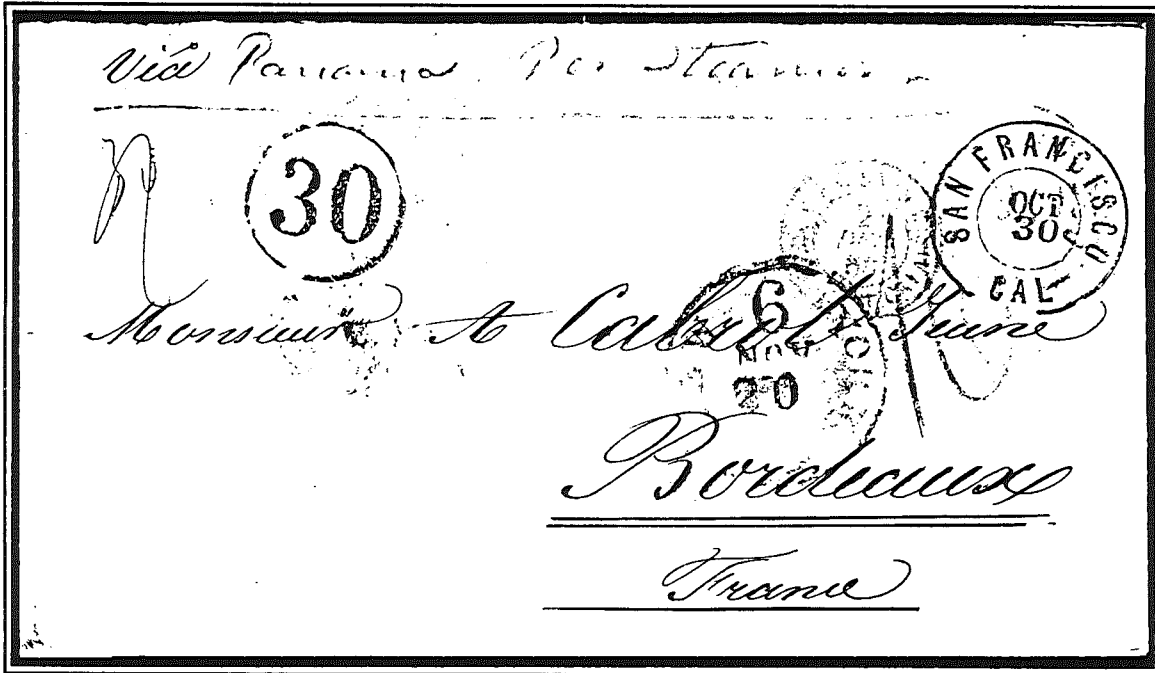 Viâ Panama Per Steamer
30
SAN FRANCISCO
OCT
30
CAL
6
NOV
20
Monsieur A Cabrol Jeune
Bordeaux
France